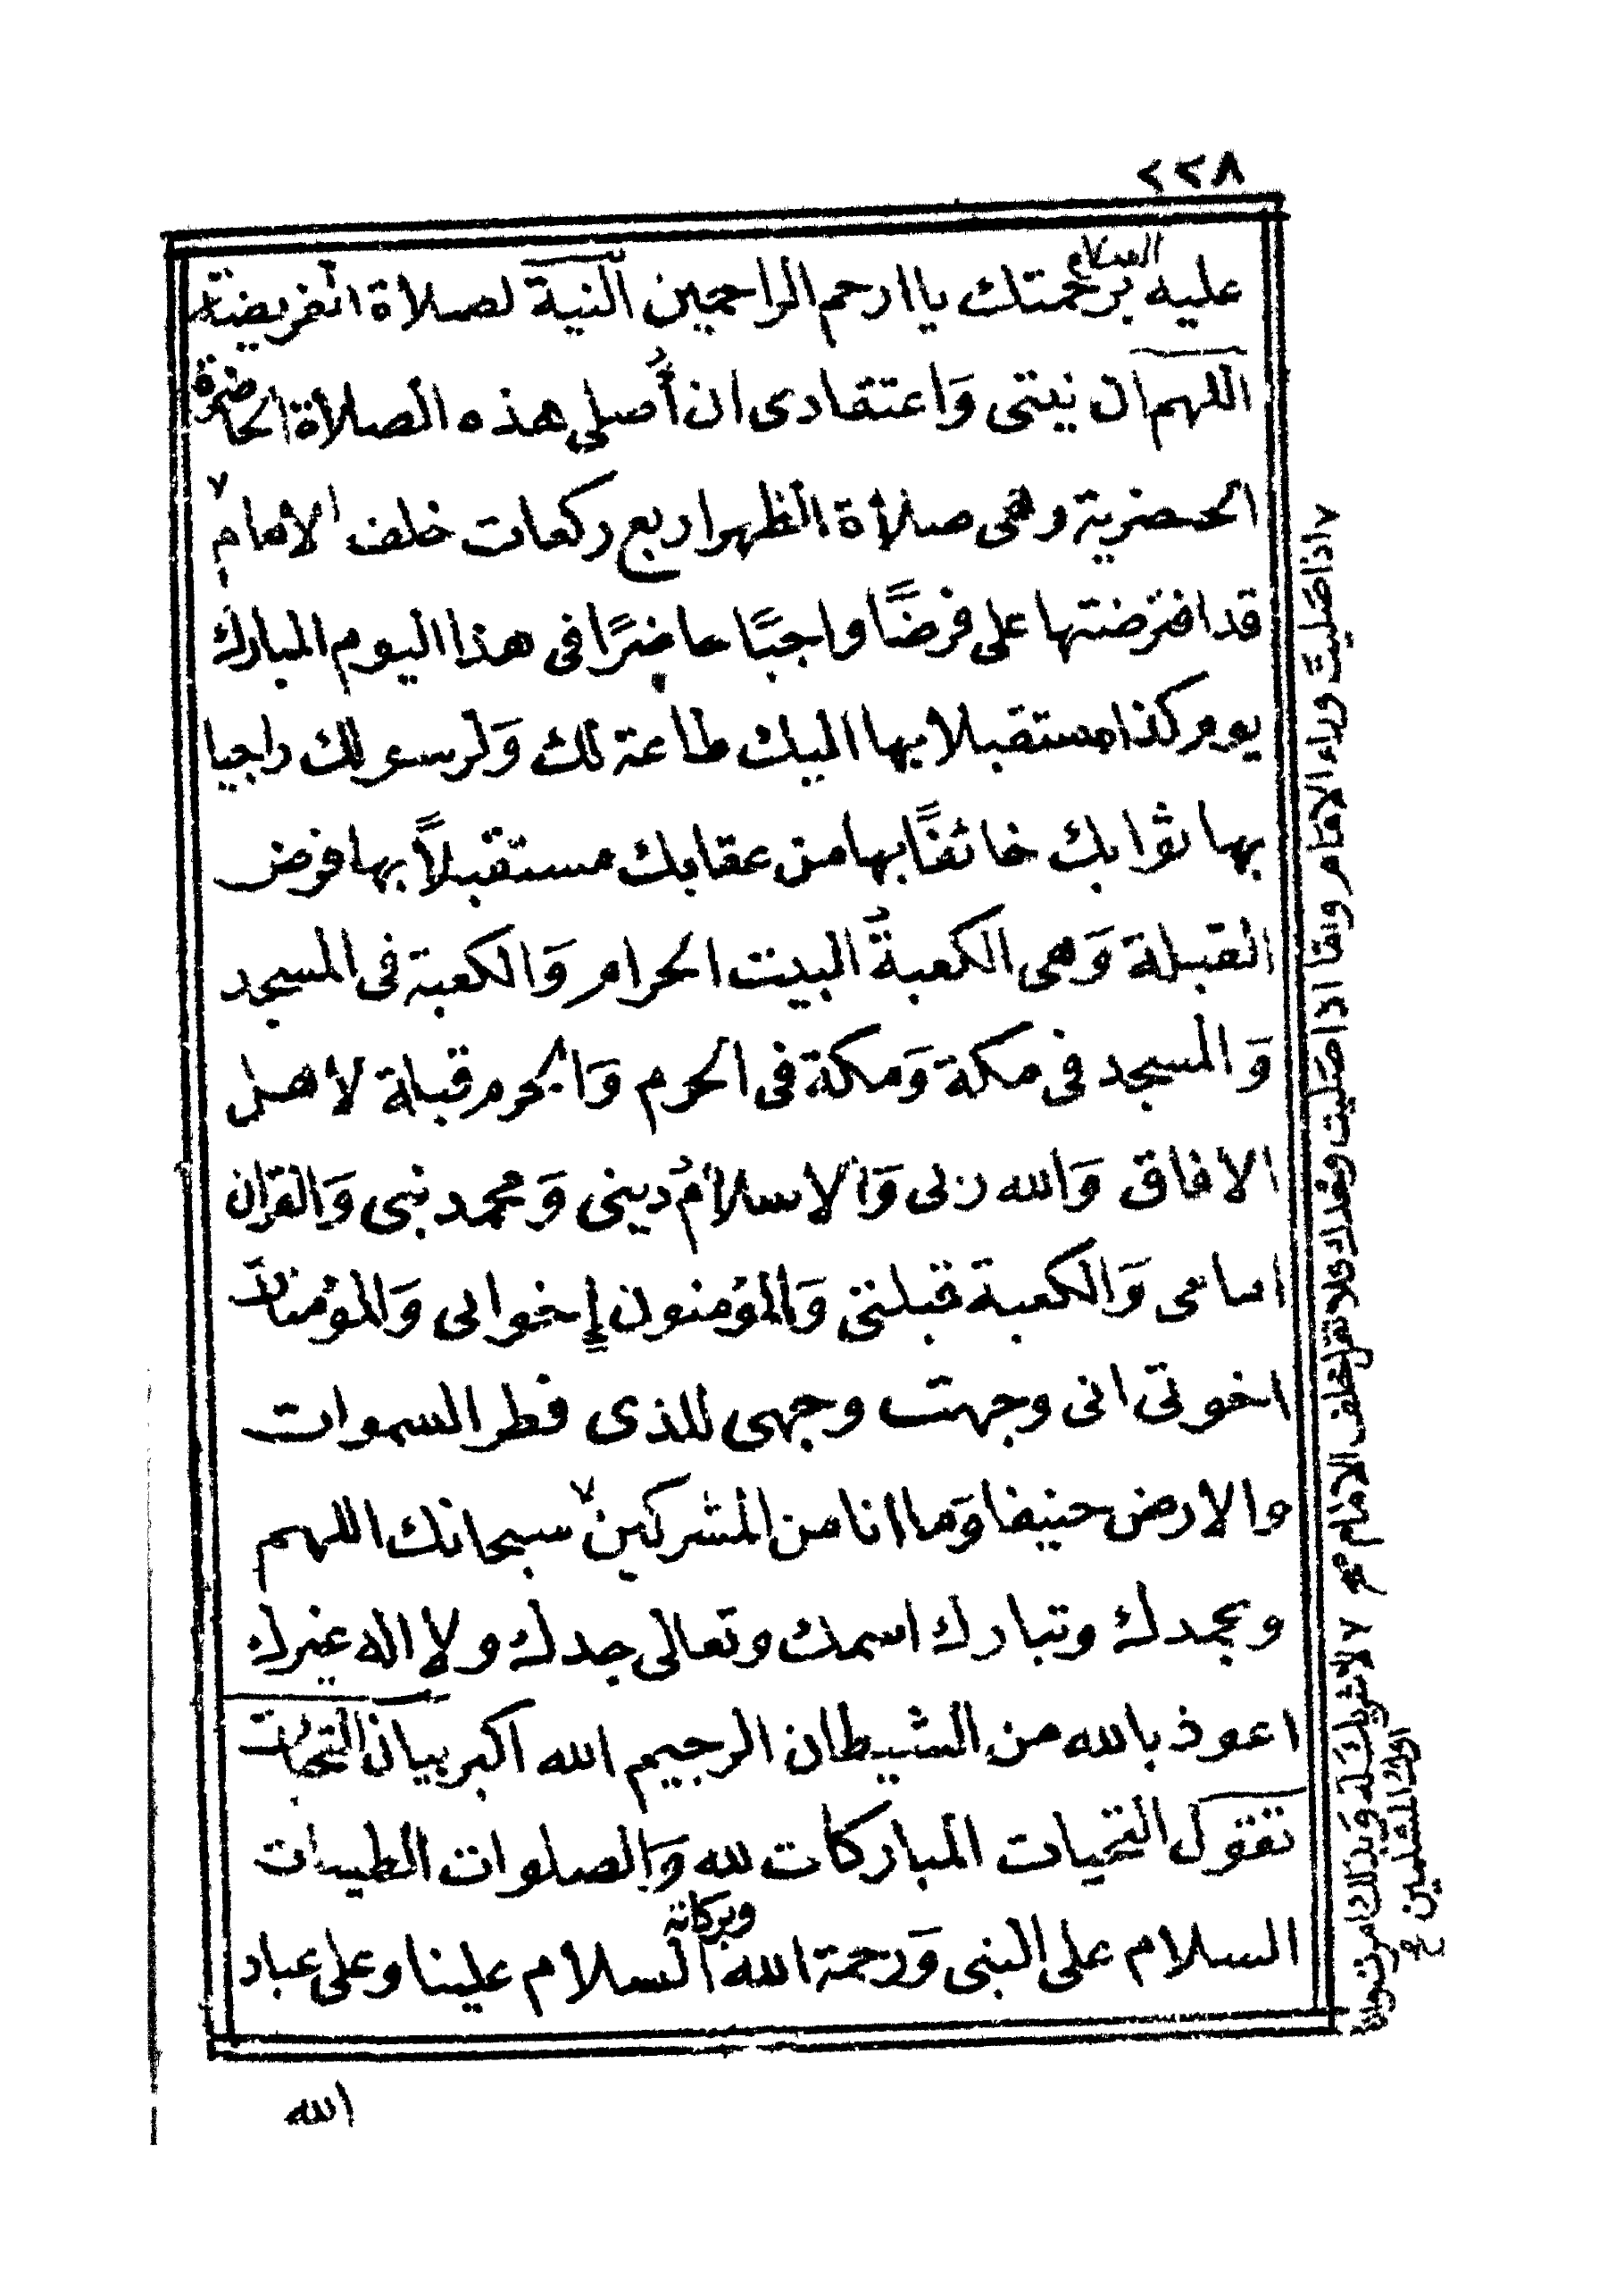 ٢٢٨
عليه السلام برحمتك يا ارحم الراحمين النية لصلاة الفريضة
اللهم ان نيتى وَاعتقادى ان أُصلى هذه الصلاة الحاضرة
الحضرية وهى صلاة الظهر اربع ركعات خلف الامام ٧
قد افترضتها على فرضًا واجبًا حاضرًا فى هذا اليوم المبارك
يوم كذا مستقبلا بها اليك طاعة لك وَلرسولك راجيا
بها ثوابك خائفًا بها من عقابك مستقبلاً بها فرض
القبلة وَهى الكعبةُ البيت الحرام وَالكعبة فى المسجد
وَالمسجد فى مكة وَمكة فى الحرم وَالحرم قبلة لاهل
الافاق وَالله ربى وَالاسلامُ دينى وَمحمد نبى وَالقران
امامى وَالكعبة قبلتى وَالمؤمنون إِخوانى وَالمؤمنات
اخوتى انى وجهت وجهى للذى فطر السموات
والارض حنيفا وَما انا من المشركين ٧ سبحانك اللهم
وبحمدك وتبارك اسمك وتعالى جدك ولا اله غيرك
اعوذ بالله من الشيطان الرجيم الله اكبر بيان التحيات
تقول التحيات المباركات لله وَالصلوات الطيبات
السلام على النبى وَرحمة الله وبركاته السلام علينا وعلى عباد
الله
٧ اذا صليت وراء الامام واما اذا صليت وحدك فلا تقل خلف الامام
٧ لا شريك له وبذلك امرت وانا
اول المسلمين